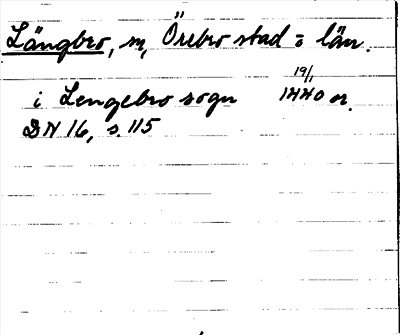 Längbro, sn, Örebro stad o. län.
19/1
i Lengebro sogn 1440 or.
DN 16, s. 115